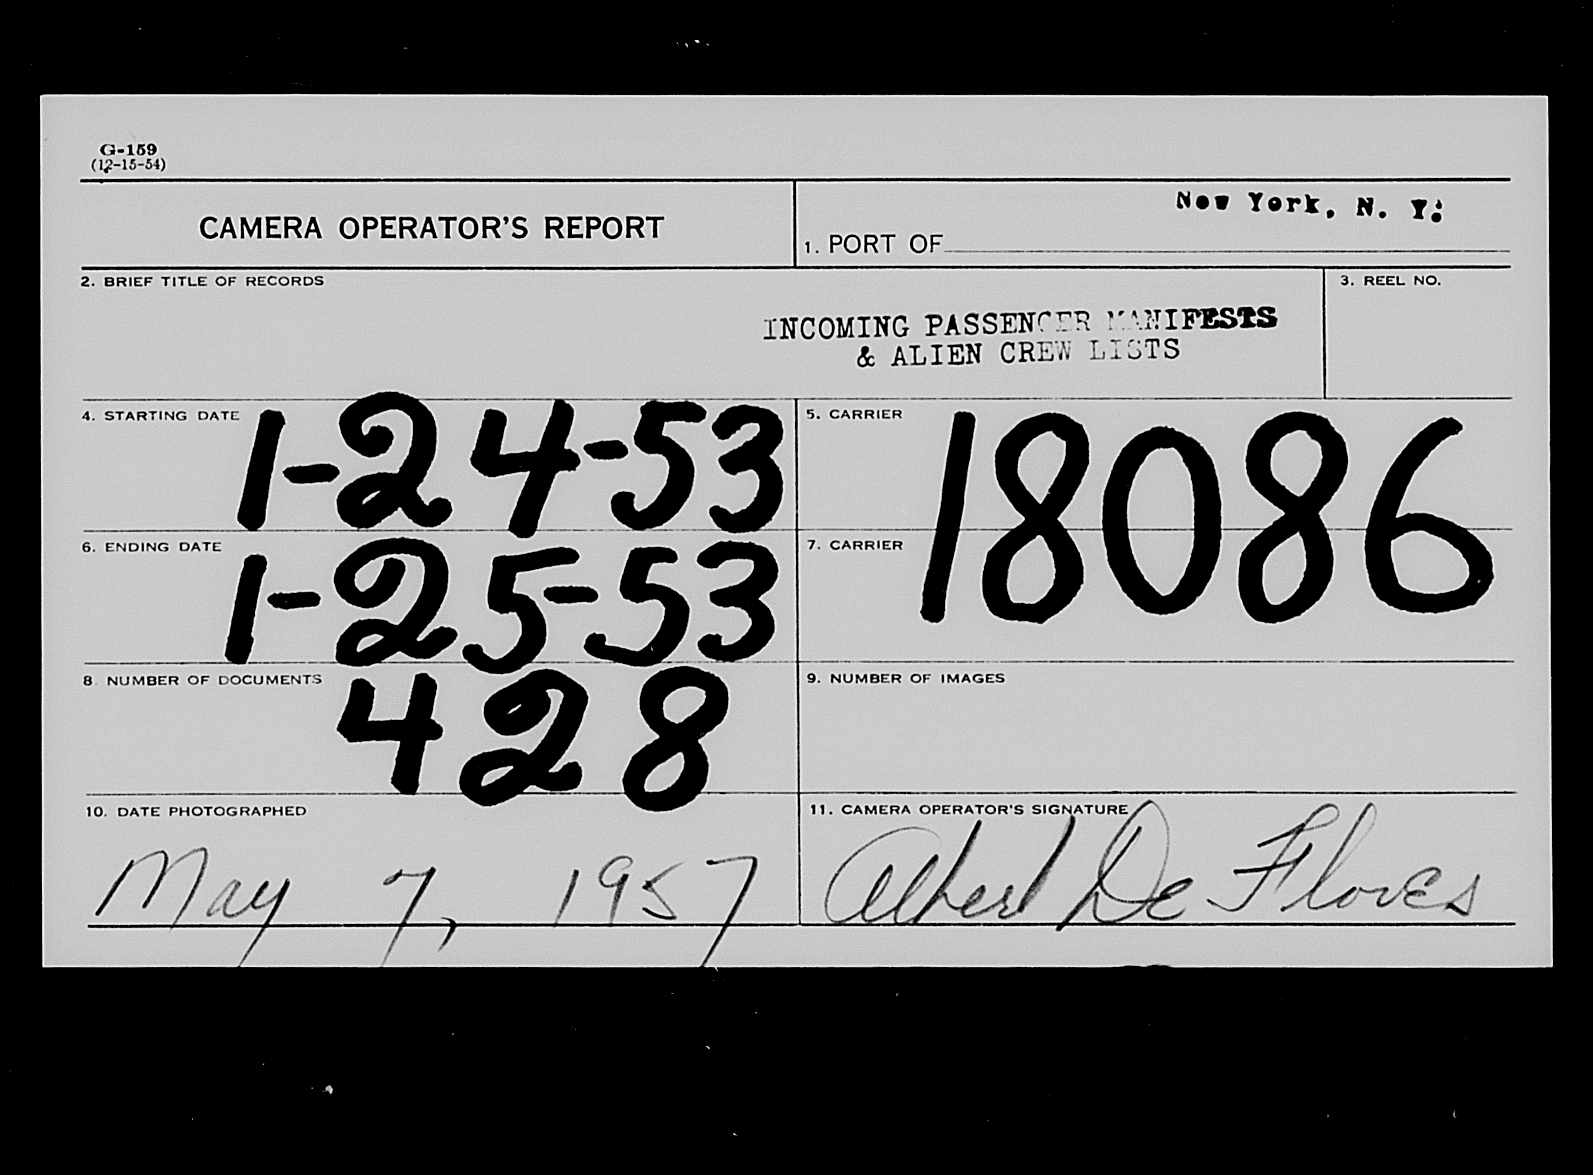 G-159
(12-15-54)
CAMERA OPERATOR'S REPORT
1. PORT OF New York, N. Y.
2. BRIEF TITLE OF RECORDS
INCOMING PASSENGER MANIFESTS
& ALIEN CREW LISTS
3. REEL NO.
4. STARTING DATE 1-24-53
5. CARRIER
18086
6. ENDING DATE 1-25-53
7. CARRIER
8. NUMBER OF DOCUMENTS 428
9. NUMBER OF IMAGES
10. DATE PHOTOGRAPHED
May 7, 1957
11. CAMERA OPERATOR'S SIGNATURE
Albert De Flores